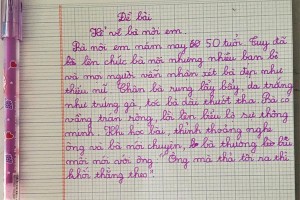 Đề bài
Tả về bà nội em
Bà nội em năm nay 50 tuổi. Tuy đã
lên chức bà nội nhưng nhiều bạn bè
và mọi người vẫn nhận xét bà đẹp như
thiếu nữ. Chân bà rụng lầy bầy, da trắng
như trứng gà, tóc bà dài thướt tha. Bà có
vầng trán rộng, lồ lên biểu lộ sự thông
minh. Khi học bài, thỉnh thoảng nghe
ông và bà nói chuyện, bà thường
môi nói với ông "Ông mà thò tôi ra thì
khỏi thằng theo".